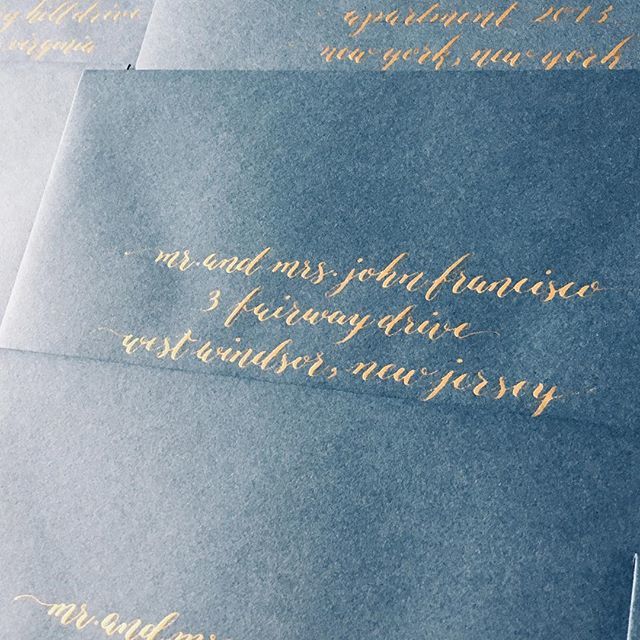 y hill drive
virginia
apartment 2013
new york, new york
mr. and mrs. john francisco
3 fairway drive
west windsor, new jersey
mr. and mrs.